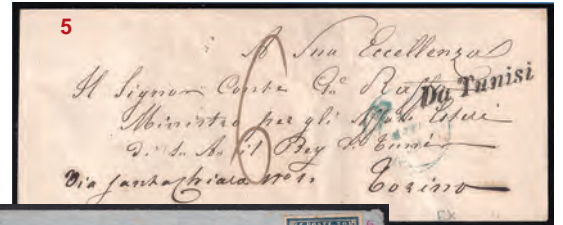 5
A Sua Eccellenza
Il Signor Conte Gu. Raffo
Da Tunisi
Ministro per gli Affari Esteri
di S. A. il Bey di Tunisi
6
Via Santa Chiara No
Torino
EX